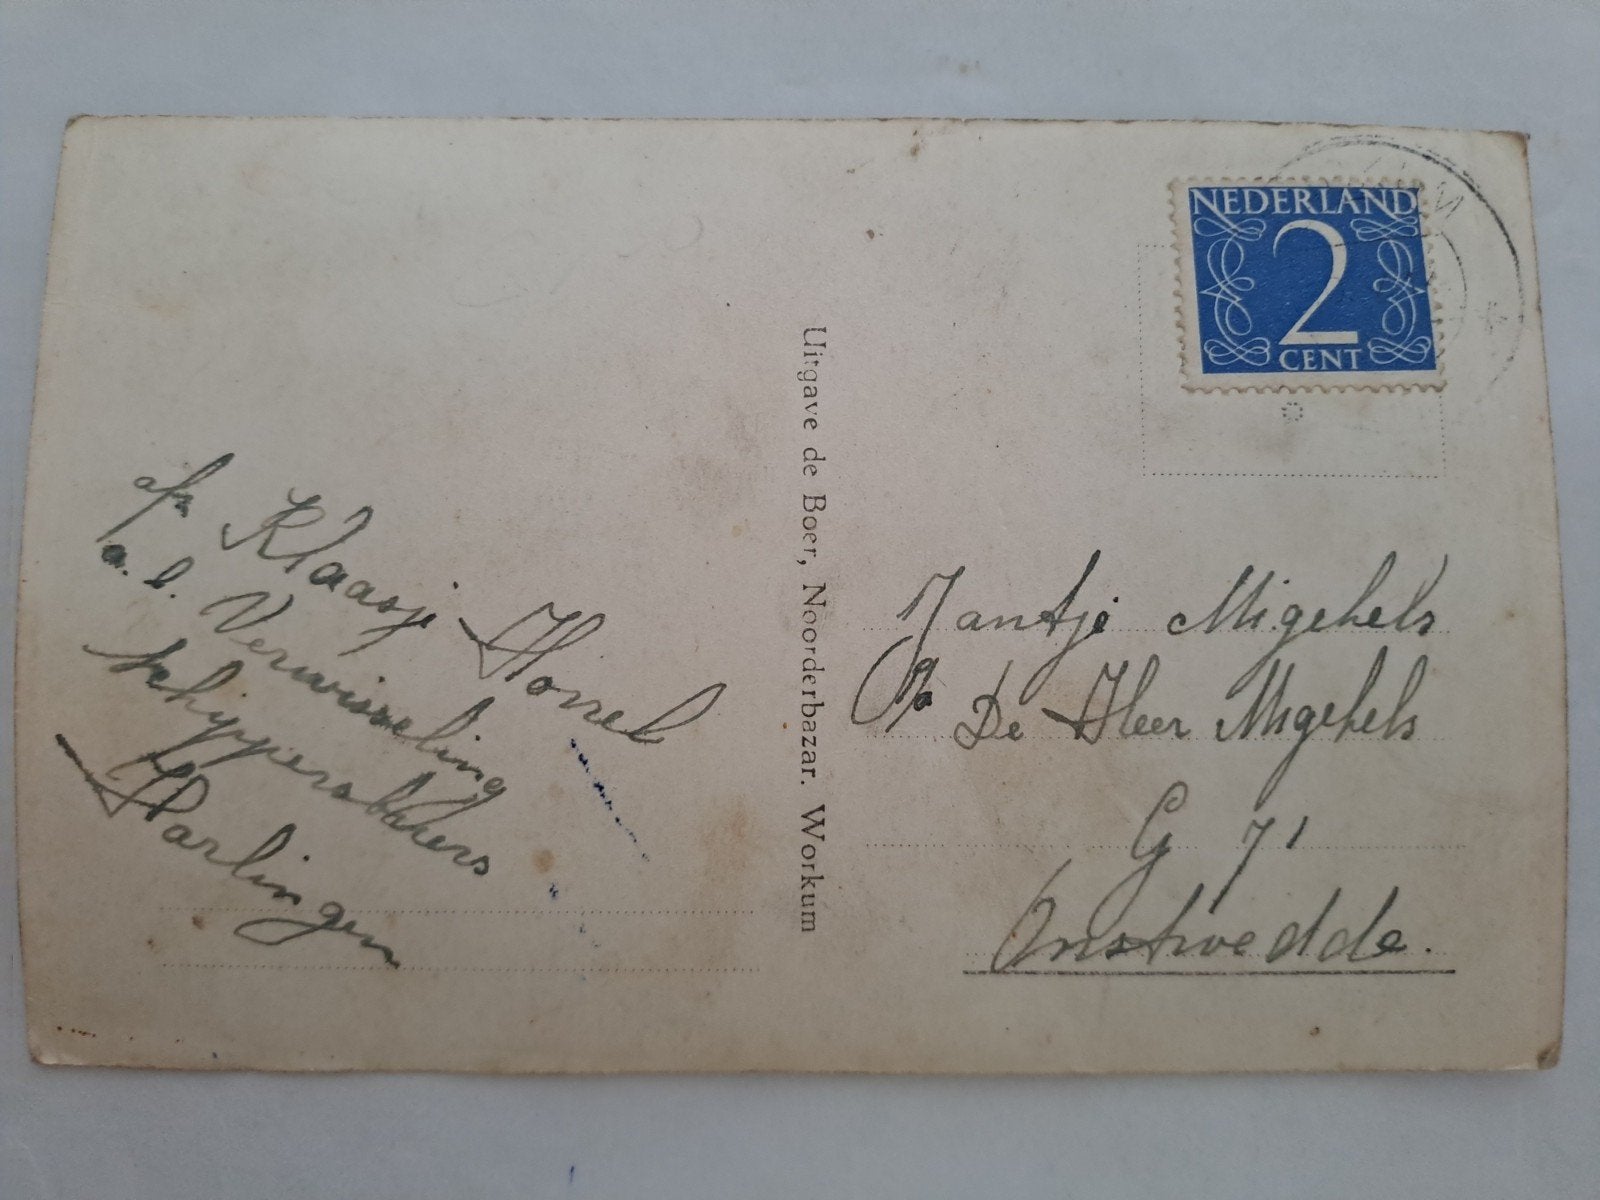 afz Klaasje Honel
a.d. Verwisseling
schippersbeurs
Harlingen
Uitgave de Boer, Noorderbazar. Workum
NEDERLAND
2
CENT
Jantje Migchels
p/a De Heer Migchels
G 71
Onstwedde.